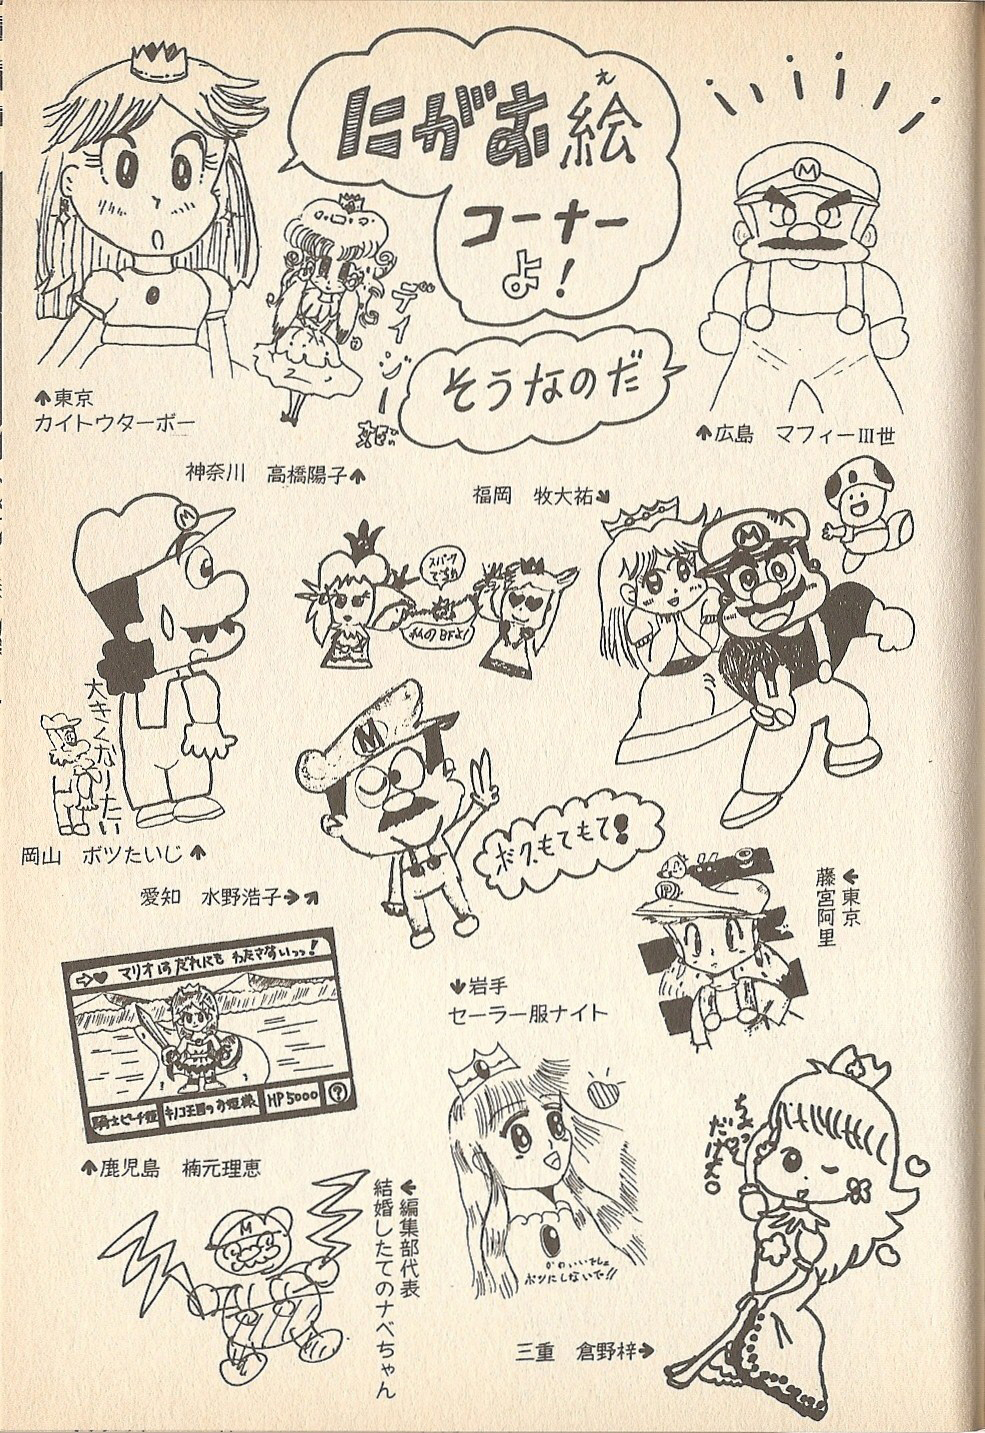 にがむ絵
え
コーナー
よ!
そうなのだ
デイジー姫
↑東京
カイトウターボー
神奈川 高橋陽子↑
↑広島 マフィーⅢ世
福岡 牧大祐↘
M
M
M
スパーク
私のBFよ!
大きくなりたい
岡山 ボツたいじ↑
M
ボク、もてもて!
愛知 水野浩子→↗
←東京
藤宮阿里
→♥ マリオはだれにもわたさないっっ!
騎士ピーチ姫
キノコ王国のお姫様
HP5000
?
↓岩手
セーラー服ナイト
↑鹿児島 楠元理恵
M
←編集部代表
結婚したてのナベちゃん
かわいいでしょ
ボツにしないで!!
ちょっと
だけよ。
三重 倉野梓→